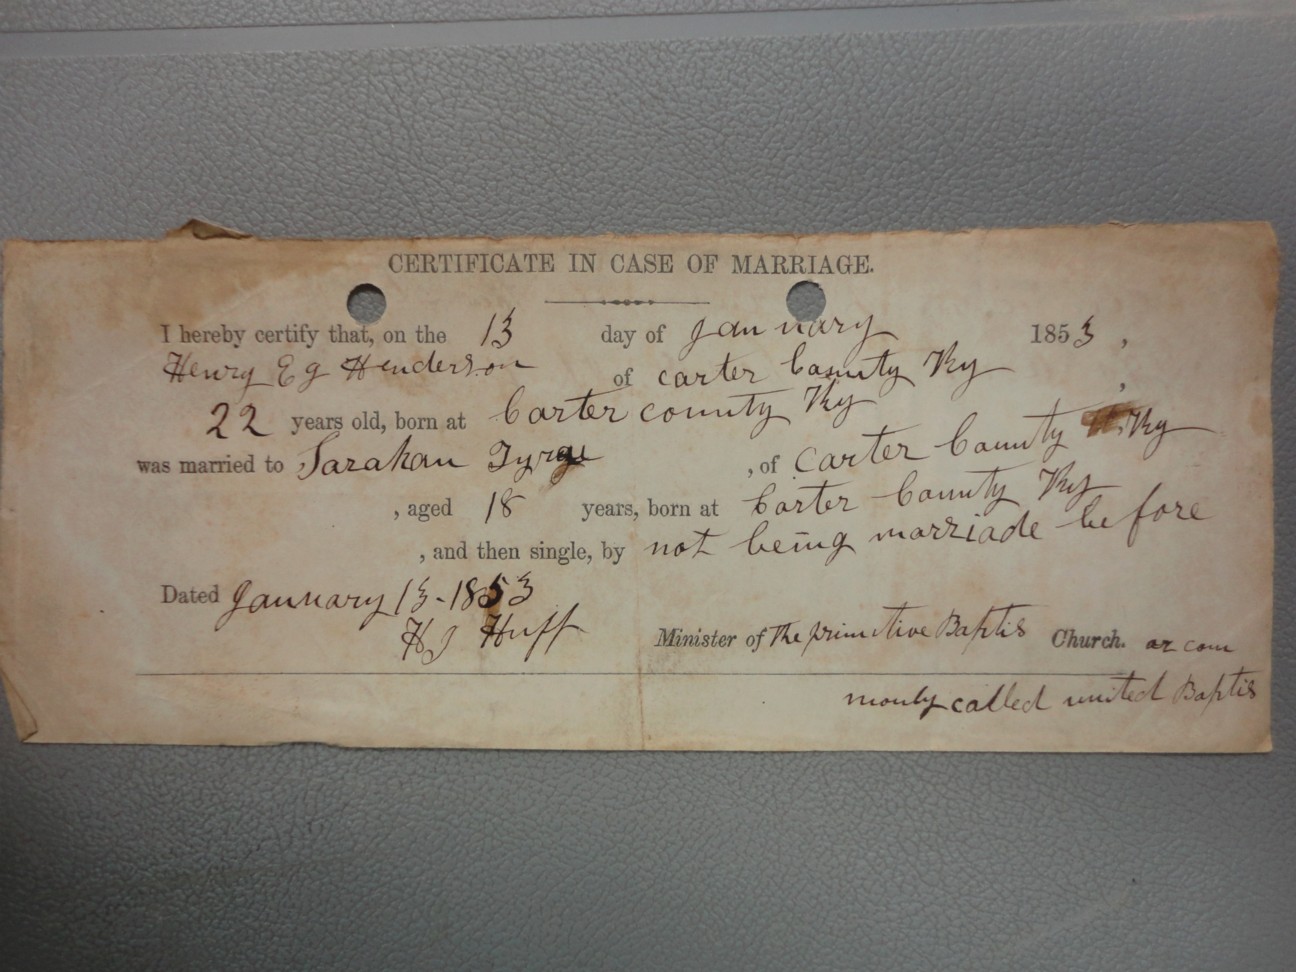 CERTIFICATE IN CASE OF MARRIAGE.
I hereby certify that, on the 13 day of January 1853,
Henry Eg Henderson of carter County Ky,
22 years old, born at Carter county Ky
was married to Sarahan , of Carter County Ky
, aged 18 years, born at Carter County Ky
, and then single, by not being marriade before
Dated January 13-1853
H J Huff Minister of the primitive Baptis Church. or com
monly called united Baptis